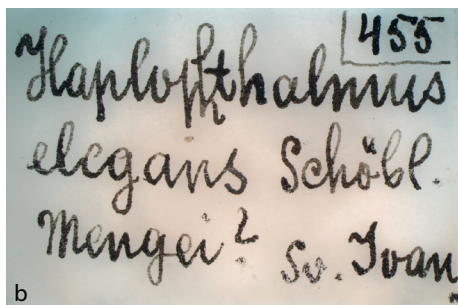 455
Haplophthalmus
elegans Schöbl.
Mengei? Sv. Ivan
b